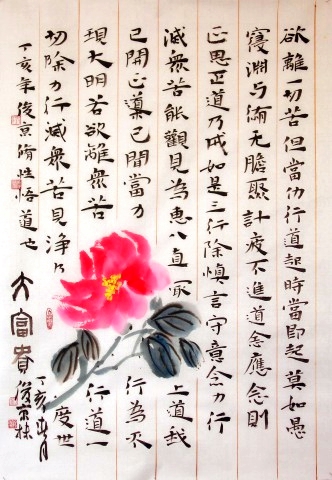 欲離一切苦但當力行道起時當即起莫如愚
淵与无膽聚計疲不進道念應念則
正思正道乃成如是三行除慎言守意念力行
滅衆苦能觀見為惠八直 上道我
已開正導已開當力 行為不
現大明苦欲離衆苦 行道一
切除力行滅衆苦見淨乃 度世
丁亥年俊景脩性悟道也
大富貴
丁亥 月
俊景